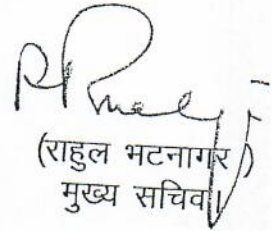 (राहुल भटनागर)
मुख्य सचिव।